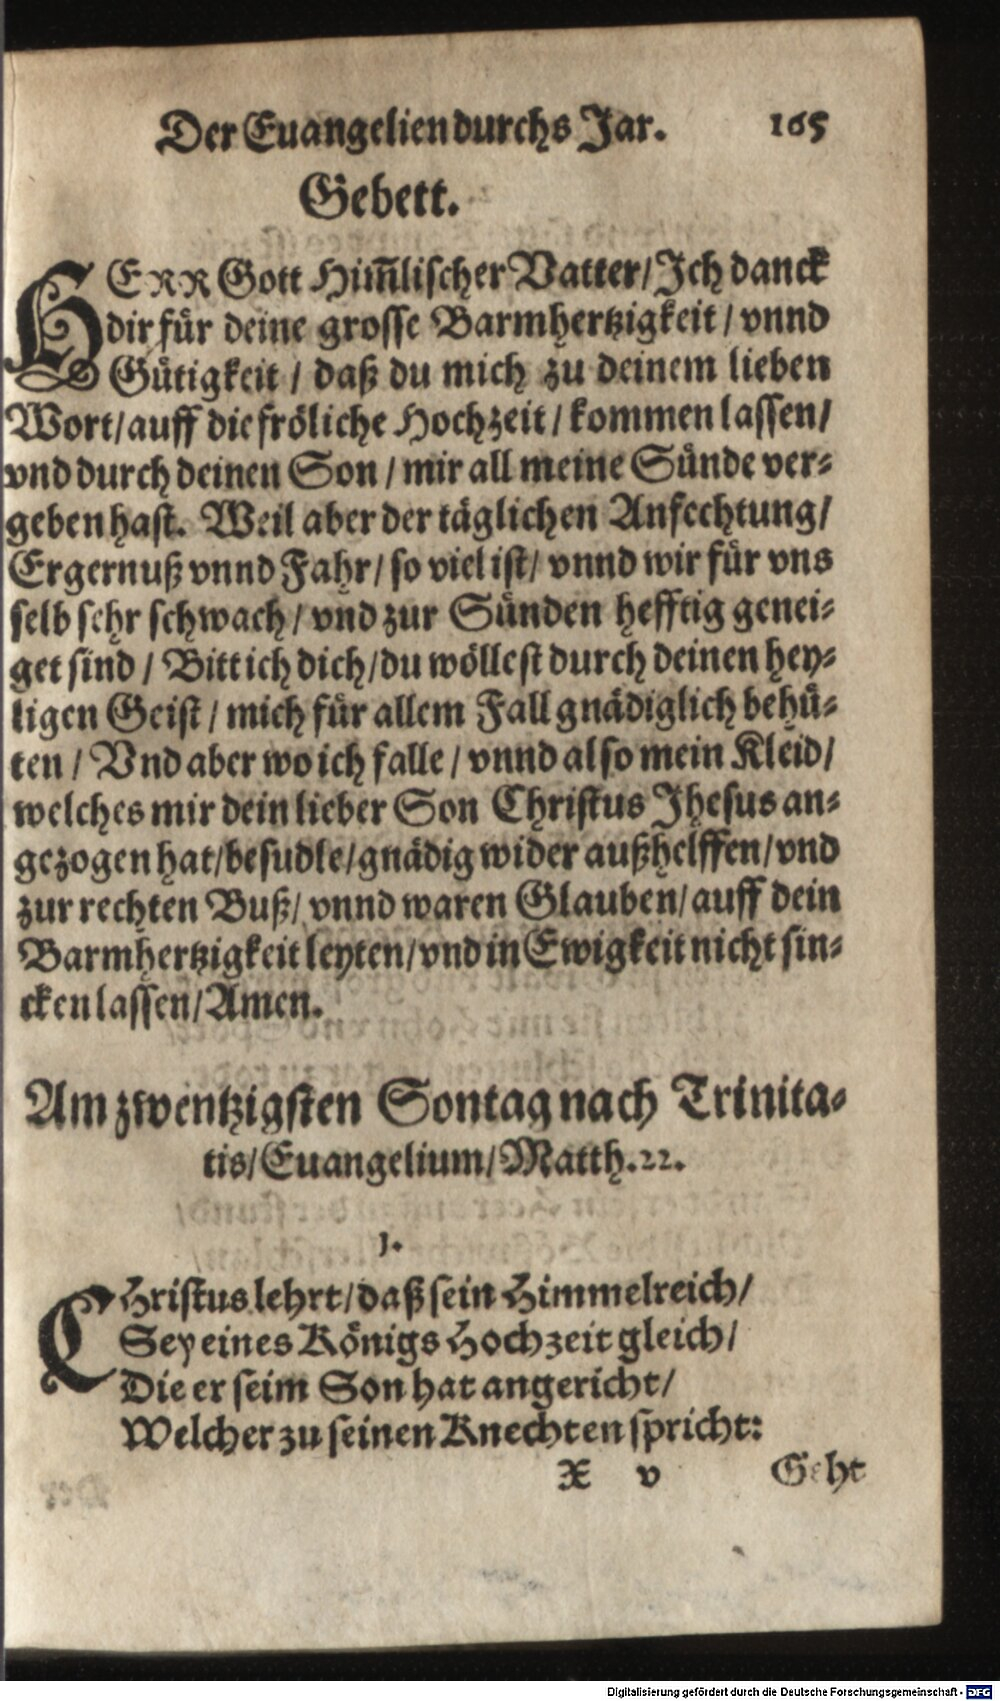 Der Euangelien durchs Jar. 165
Gebett.
HERR Gott Him̃lischer Vatter/ Ich danck
dir für deine grosse Barmhertzigkeit / vnnd
Gütigkeit / daß du mich zu deinem lieben
Wort/ auff die fröliche Hochzeit / kommen lassen/
vnd durch deinen Son / mir all meine Sünde ver-
geben hast. Weil aber der täglichen Anfechtung/
Ergernuß vnnd Fahr/ so viel ist/ vnnd wir für vns
selb sehr schwach/ vnd zur Sünden hefftig genei-
get sind / Bitt ich dich/ du wöllest durch deinen hey-
ligen Geist / mich für allem Fall gnädiglich behü-
ten / Vnd aber wo ich falle / vnnd also mein Kleid/
welches mir dein lieber Son Christus Jhesus an-
gezogen hat/ besudle/ gnädig wider außhelffen/ vnd
zur rechten Buß/ vnnd waren Glauben/ auff dein
Barmhertzigkeit leyten/ vnd in Ewigkeit nicht sin-
cken lassen/ Amen.
Am zwentzigsten Sontag nach Trinita-
tis/ Euangelium/ Matth. 22.
1.
CHristus lehrt/ daß sein Himmelreich/
Sey eines Königs Hochzeit gleich/
Die er seim Son hat angericht/
Welcher zu seinen Knechten spricht:
X v Geht
Digitalisierung gefördert durch die Deutsche Forschungsgemeinschaft - DFG